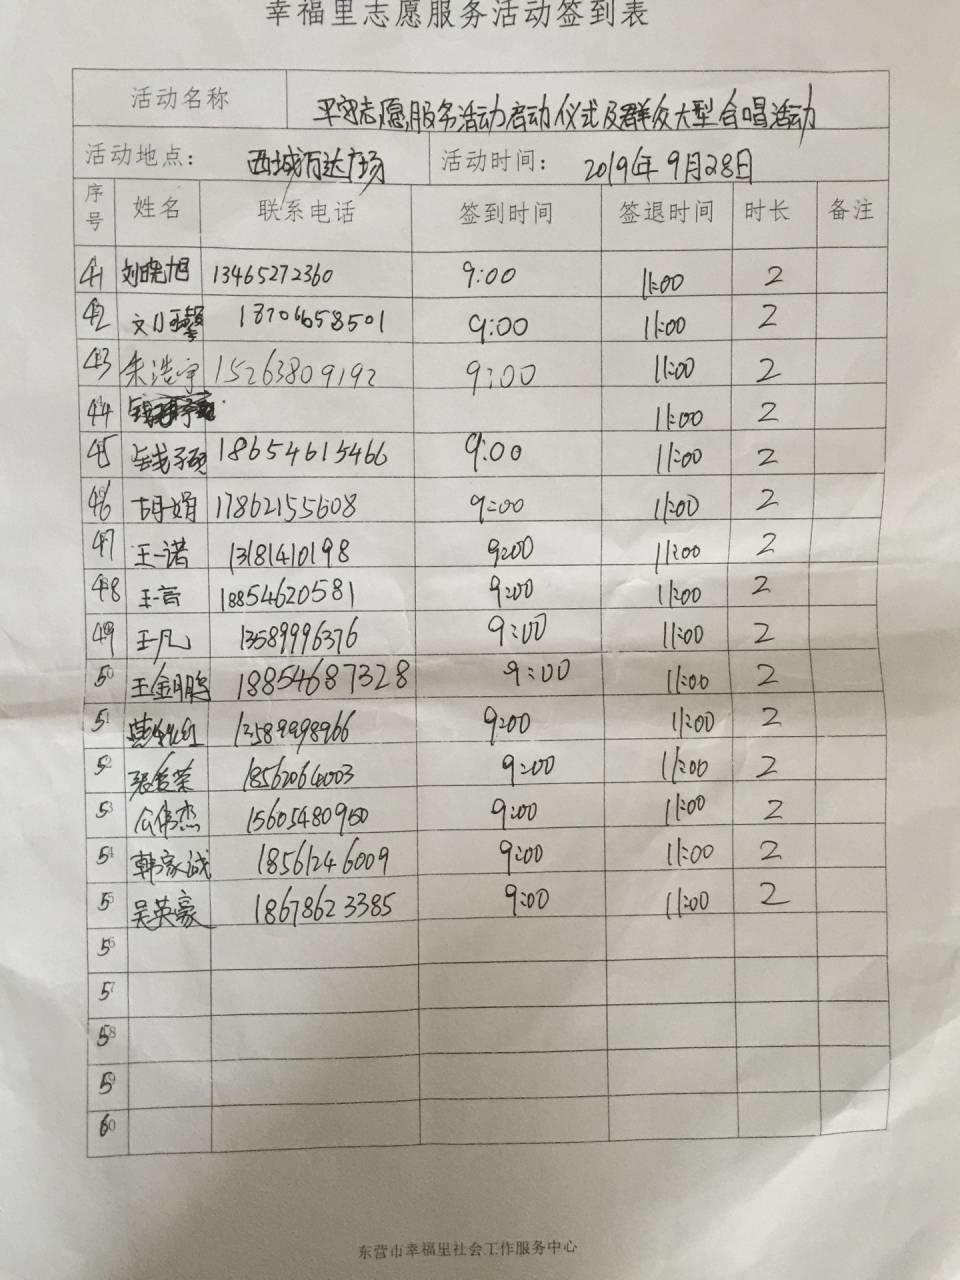 幸福里志愿服务活动签到表
活动名称 平安志愿服务活动启动仪式及群众大型合唱活动
活动地点： 西城万达广场 活动时间： 2019年9月28日
序号 姓名 联系电话 签到时间 签退时间 时长 备注
41 刘晓旭 13465272360 9:00 11:00 2
42 9:00 11:00 2
43 朱浩宇 15263809192 9:00 11:00 2
44 11:00 2
45 钱子硕 18654615466 9:00 11:00 2
46 胡娟 17862155608 9:00 11:00 2
47 王一诺 13181410198 9:00 11:00 2
48 王一言 18854620581 9:00 11:00 2
49 王凡 13589996376 9:00 11:00 2
50 王金鹏 18854687328 9:00 11:00 2
51 13589998966 9:00 11:00 2
52 9:00 11:00 2
53 9:00 11:00 2
54 韩家诚 18561246009 9:00 11:00 2
55 吴英豪 18678623385 9:00 11:00 2
56
57
58
59
60
东营市幸福里社会工作服务中心